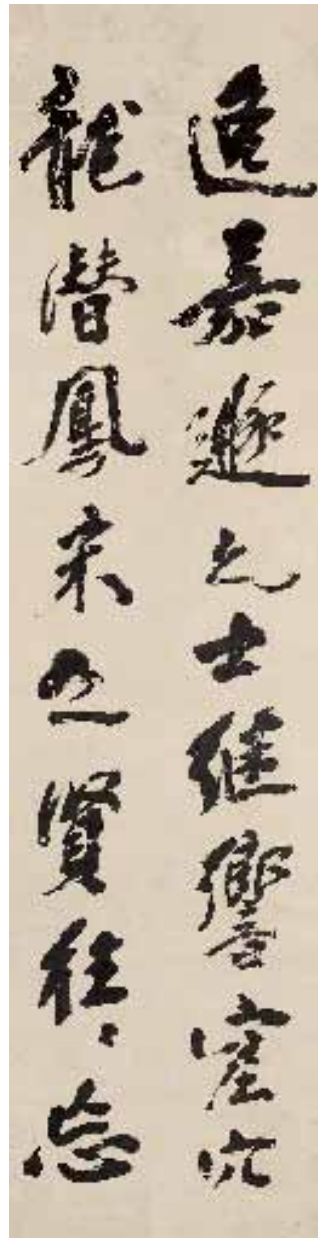 逸嘉遯之士繼響窟穴
龍潛鳳采之賢往々忘